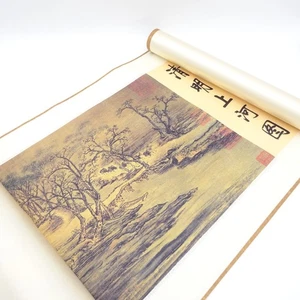 清明上河图